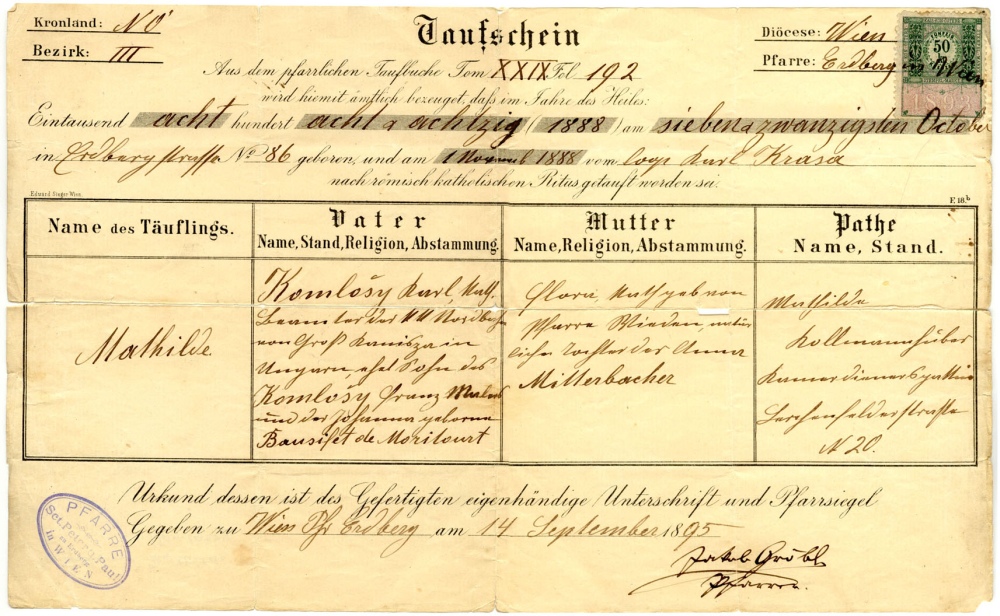 Kronland: NÖ
Bezirk: III
Taufschein
Diöcese: Wien
Pfarre: Erdberg in Wien
50
Aus dem pfarrlichen Taufbuche Tom XXIX Fol 192
wird hiemit ämtlich bezeuget, daß im Jahre des Heiles:
Eintausend acht hundert acht & achtzig (1888) am sieben & zwanzigsten October
in Erdbergstrasse No 86 geboren, und am 1 Novemb 1888 vom Coop Karl Krasa
nach römisch katholischen Ritus getauft worden sei.
Edward Sieger Wien.
F. 18.b
Name des Täuflings.
Vater
Name, Stand, Religion, Abstammung.
Mutter
Name, Religion, Abstammung.
Pathe
Name, Stand.
Mathilde
Komlósy Karl, Kath.
Beamter der KK Nordbahn
von Groß Kanisza in
Ungarn, ehel Sohn des
Komlósy Franz Malers
und der Johanna geborne
Bausifet de Moricourt
Flora, Kath geb von
Pfarre Wieden, natür
liche Tochter der Anna
Mitterbacher
Mathilde
Kollmannhuber
Kammerdienersgattin
Lerchenfelderstrasse
N 20.
Urkund dessen ist des Gefertigten eigenhändige Unterschrift und Pfarrsiegel
Gegeben zu Wien Pf Erdberg am 14 September 1895
PFARRE
Set. Peter & Paul
in WIEN
Jakob Gröbl
Pfarrer